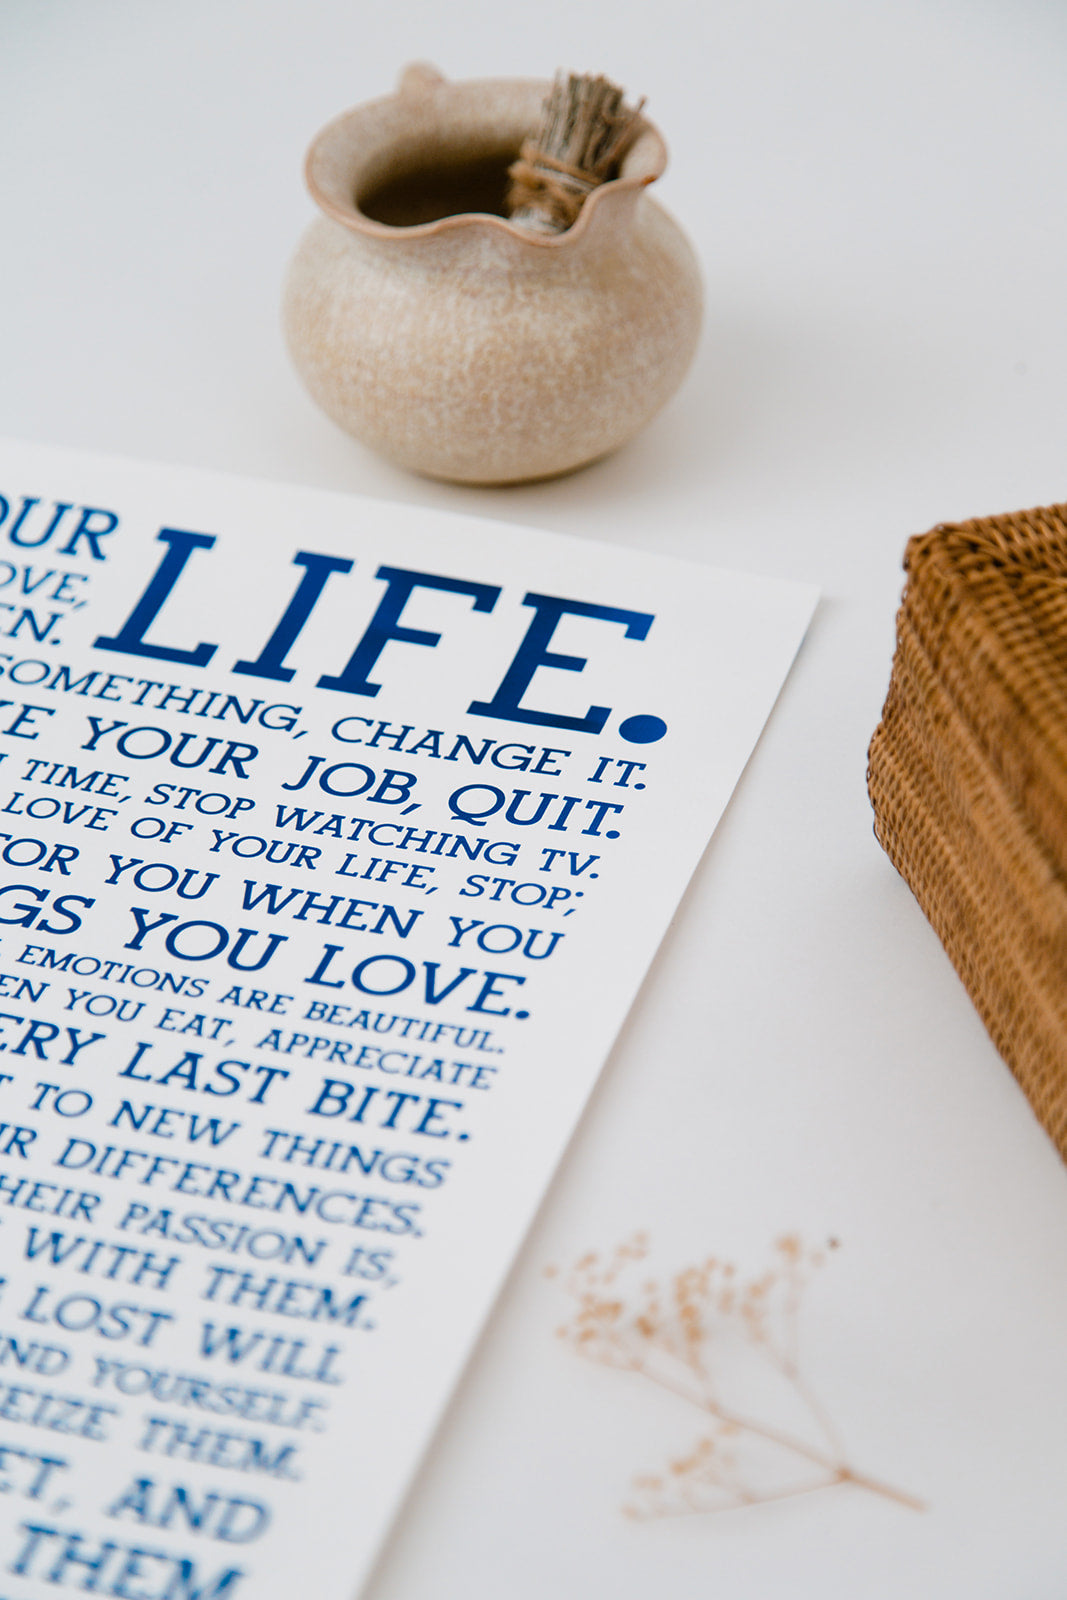 OUR LIFE.
OVE,
EN.
SOMETHING, CHANGE IT.
KE YOUR JOB, QUIT.
TIME, STOP WATCHING TV.
LOVE OF YOUR LIFE, STOP;
FOR YOU WHEN YOU
GS YOU LOVE.
EMOTIONS ARE BEAUTIFUL.
EN YOU EAT, APPRECIATE
ERY LAST BITE.
T TO NEW THINGS
R DIFFERENCES.
HEIR PASSION IS,
WITH THEM.
LOST WILL
ND YOURSELF.
EIZE THEM.
ET, AND
THEM